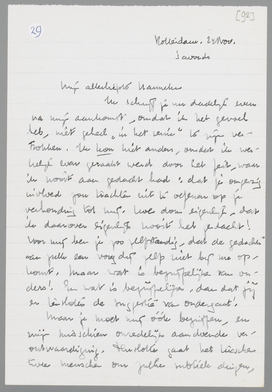 [92]
29
Rotterdam. 22 Nov.
's avonds
Mijn allerliefste Hanneke
Ik schrijf je nu dadelijk even
na mijn aankomst, omdat ik het gevoel
heb, niet geheel "in het reine" te zijn ver-
trokken. Ik kon niet anders, omdat ik
even geraakt werd door het feit, waar
ik nooit aan gedacht had: dat je
invloed zou trachten uit te oefenen op je
verhouding tot mij. Hoe dom eigenlijk, dat
ik daarover eigenlijk nooit heb gedacht!
Voor mij ben je zoo zelfstandig, dat de gedachte
aan een voogdij zelfs niet bij me op-
komt. Maar wat is begrijpelijker van
ders! En wat is begrijpelijker, dan dat jij
en de van ondergaat.
Maar je moet mij ook begrijpen en
mijn misschien onredelijk aandoende ver-
ontwaardiging. Tenslotte gaat het tusschen
twee menschen om zulke subtiele dingen,